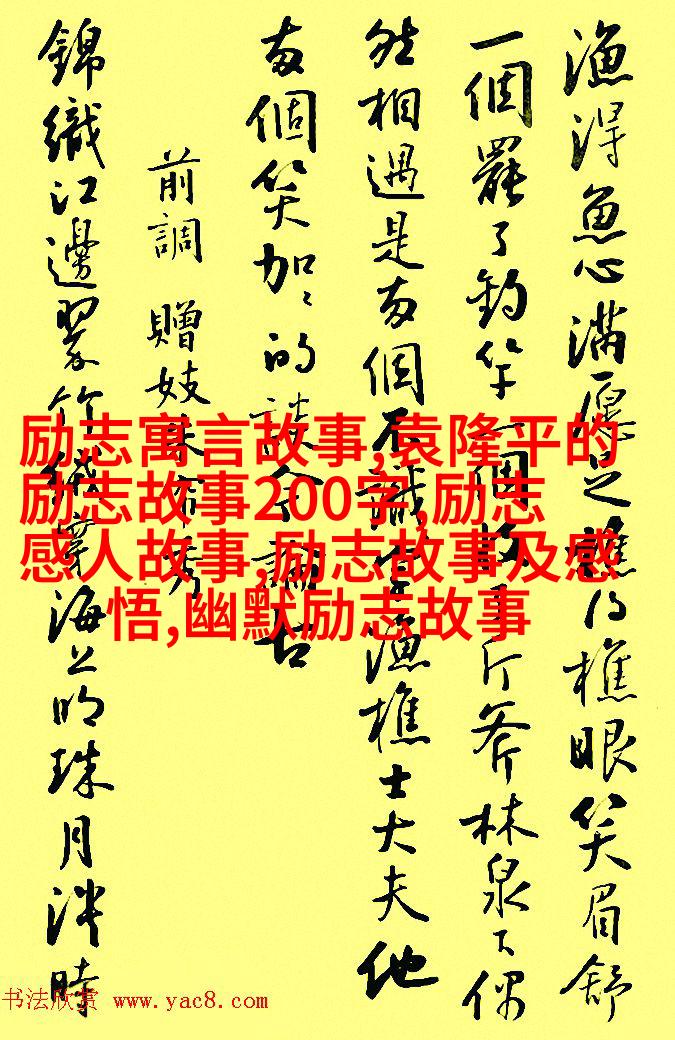 漁得魚心滿愿足樵得樵眼笑眉舒
一個罷了釣竿一個收了斤斧林泉下偶
然相遇是兩個不識字漁樵士大夫他
兩個笑加加的談今論古
前調 贈妓朱帘秀
錦織江邊翠竹絨穿海上明珠月淡時
励志寓言故事,袁隆平的
励志故事200字,励志
感人故事,励志故事及感
悟,幽默励志故事
书法欣赏 www.yac8.com